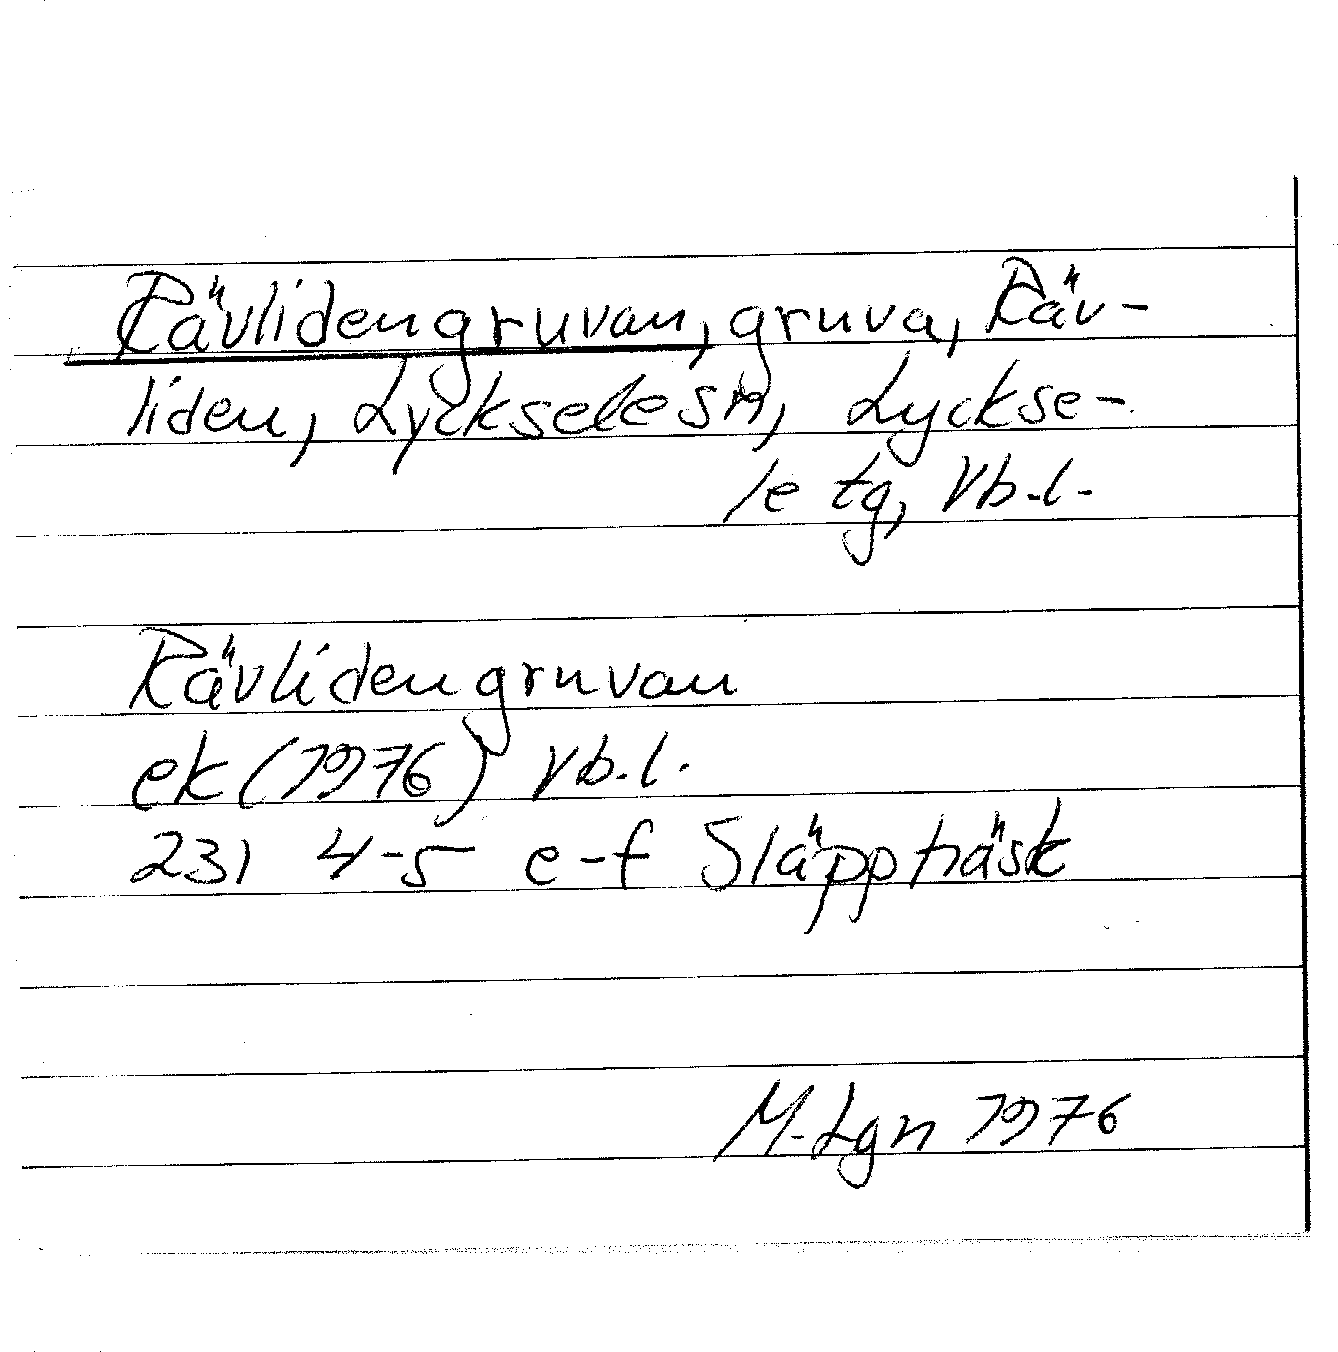 Rävlidengruvan, gruva, Räv-
liden, Lycksele sn, Lyckse-
le tg, Vb.l.
Rävlidengruvan
ek (1976) Vb.l.
231 4-5 e-f Släppträsk
M. Lgn 1976